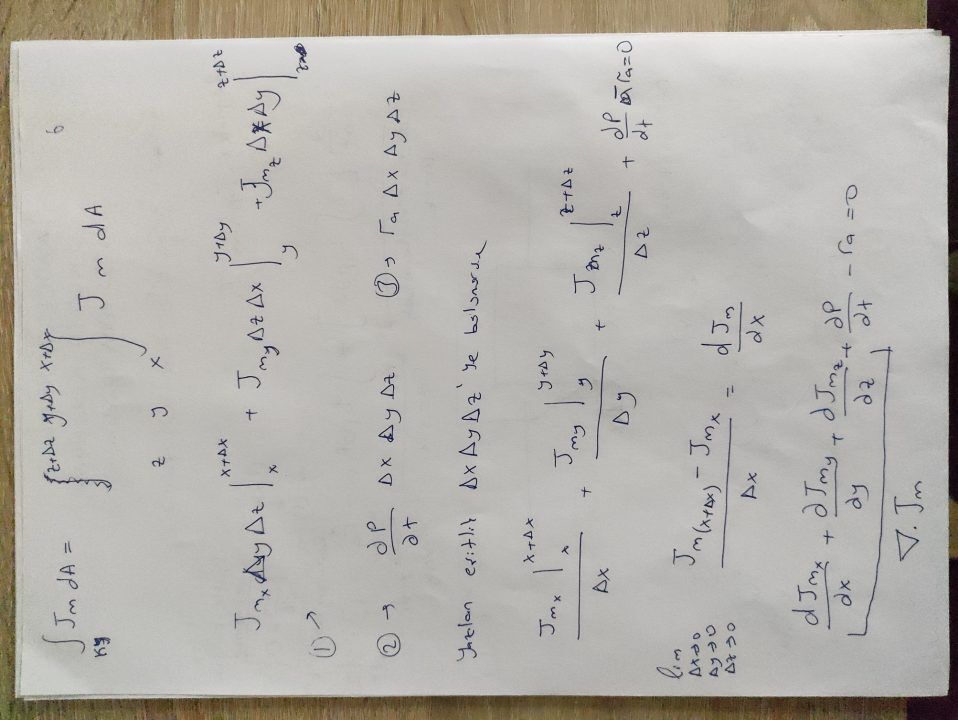 6
∫_KY J_m dA = ∫_z^{z+Δz} ∫_y^{y+Δy} ∫_x^{x+Δx} J_m dA
J_{mx} Δy Δz |_x^{x+Δx} + J_{my} Δz Δx |_y^{y+Δy} + J_{mz} Δx Δy |_z^{z+Δz}
① →
② → ∂P/∂t Δx Δy Δz ③ → r_a Δx Δy Δz
Yazılan eşitlik Δx Δy Δz'ye bölünürse
J_{mx} |_x^{x+Δx} / Δx + J_{my} |_y^{y+Δy} / Δy + J_{mz} |_z^{z+Δz} / Δz + ∂P/∂t - r_a = 0
lim Δx→0 Δy→0 Δz→0 (J_{m(x+Δx)} - J_{mx}) / Δx = dJ_m/dx
∂J_{mx}/∂x + ∂J_{my}/∂y + ∂J_{mz}/∂z + ∂P/∂t - r_a = 0
∇ . J_m